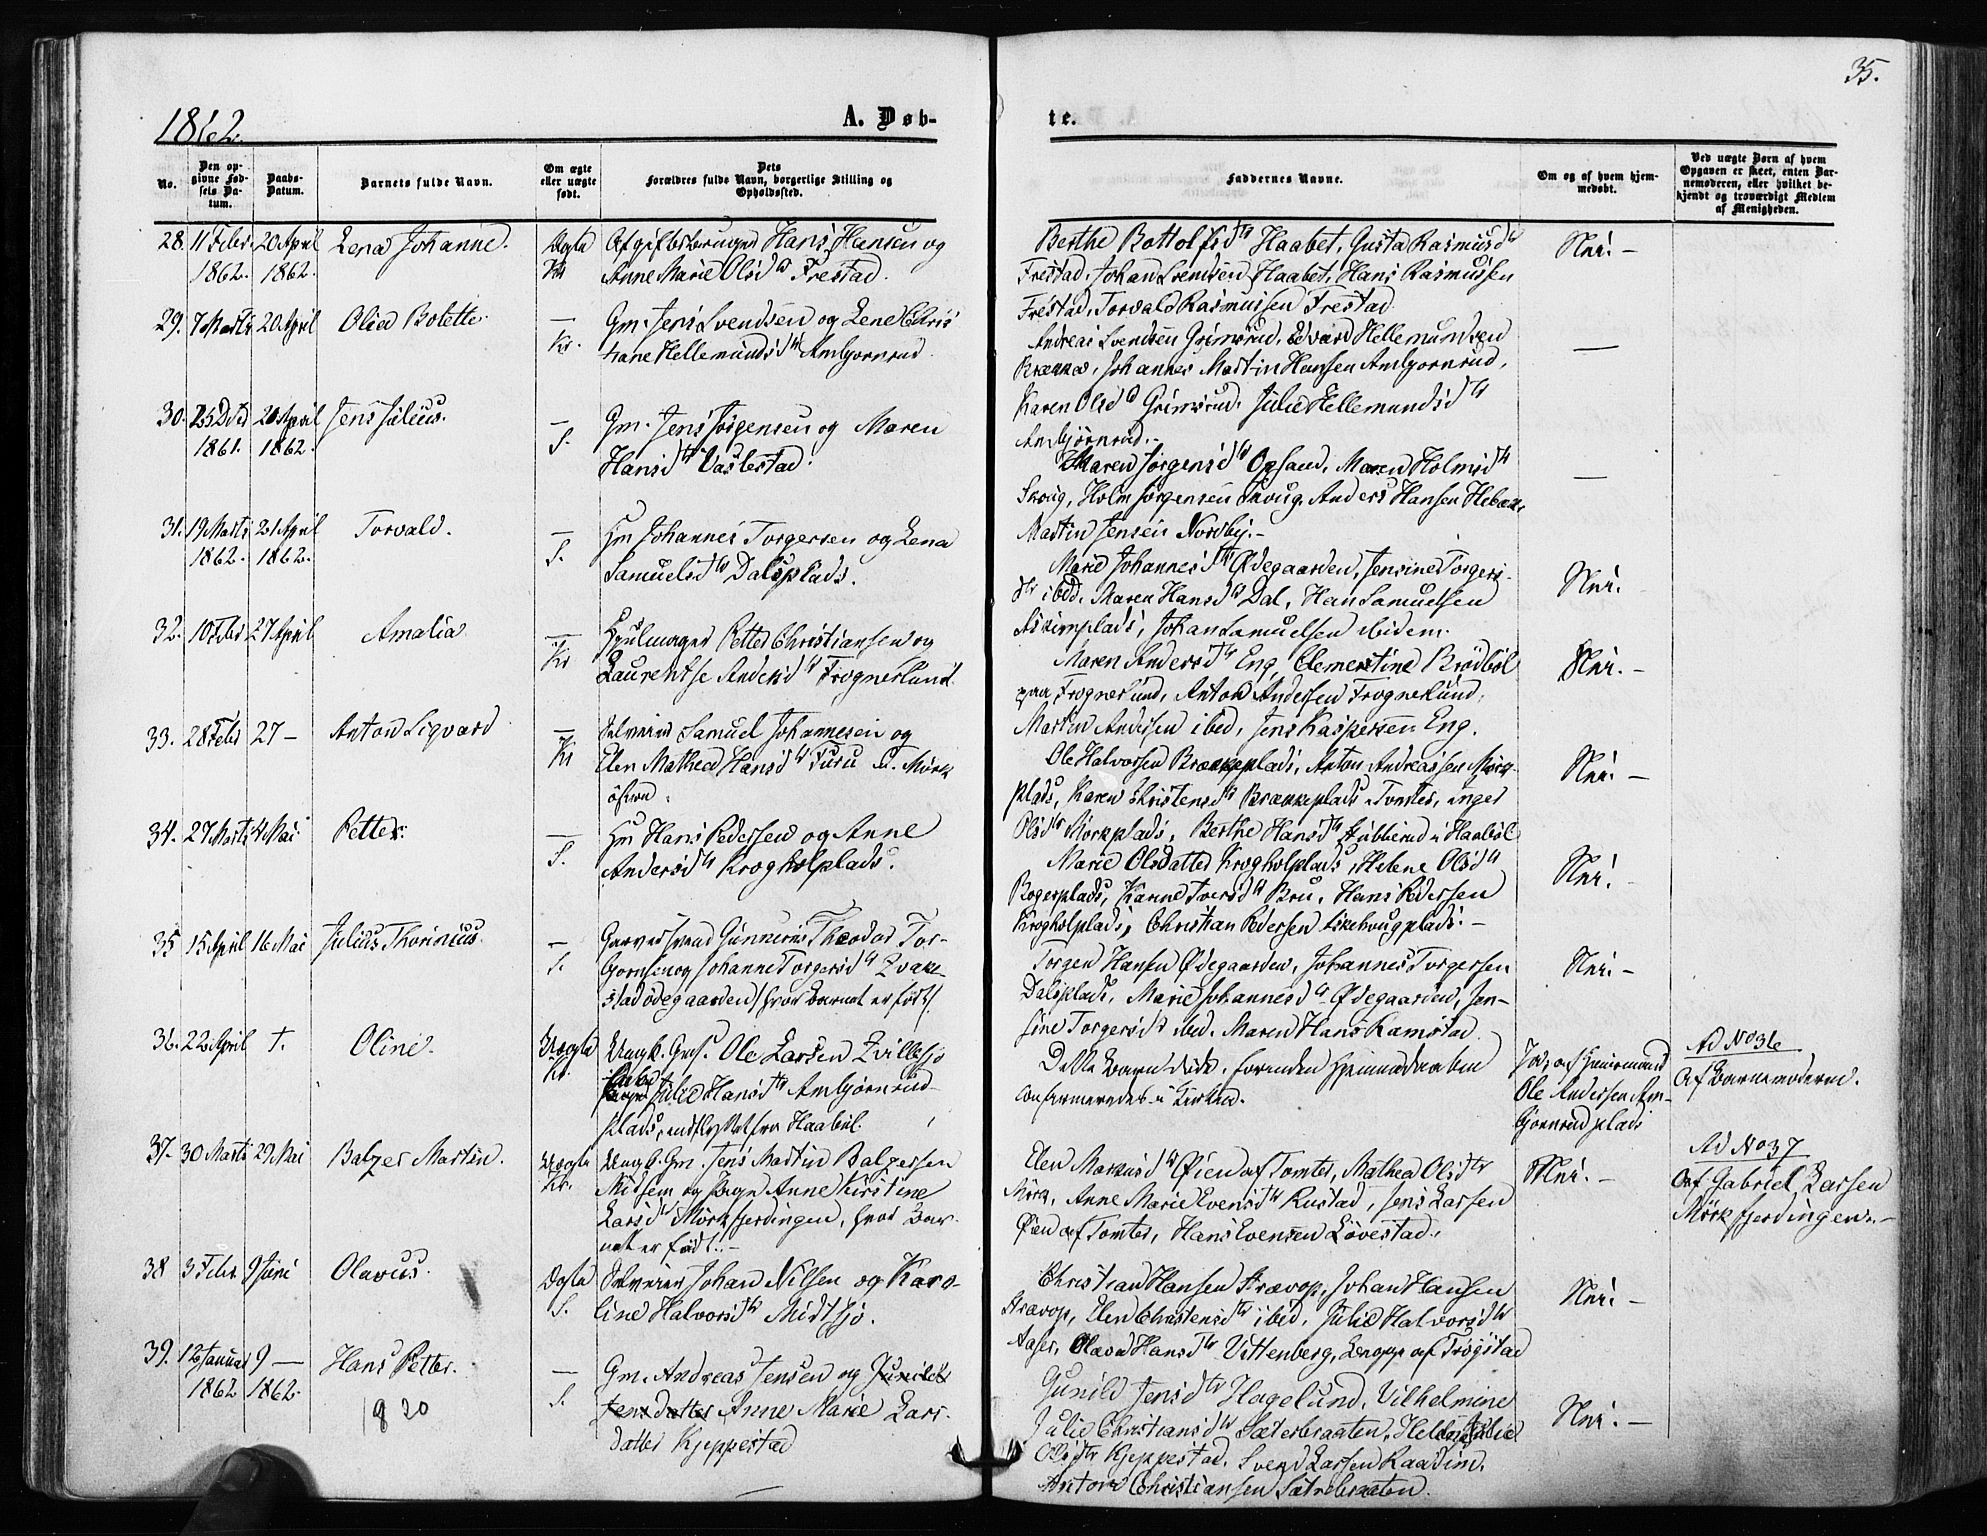 35.
1862.
A. Døb-
te.
No.
Den op-
givne Fød-
sels Da-
tum.
Daabs-
Datum.
Barnets fulde Navn.
Om ægte
eller uægte
født.
Dets
Forældres fulde Navn, borgerlige Stilling og
Opholdssted.
Faddernes Navne.
Om og af hvem hjem-
medøbt.
Ved uægte Børn af hvem
Opgaven er skeet, enten Bar-
nemoderen, eller hvilket be-
kjendt og troværdigt Medlem
af Menigheden.
28. 11 Febr 1862. 20 April 1862. Lena Johanne. Ægte Kr
Afgiftsbruger Hans Hansen og
Anne Marie Olsdtr Frestad.
Berthe Bottolfsdtr Haabet, Gusta Rasmusdtr
Frestad, Johan Svendsen Haabet, Hans Rasmussen
Frestad, Torvald Rasmussen Frestad
Nei. -
29. 7 Marts 20 April Olea Bolette. — Kr.
Gm. Jens Svendsen og Lene Chris
tiane Hellemundsdtr Ambjørnrud.
Andreas Svendsen Grimsrud, Edvard Hellemundsen
Krænna, Johannes Martin Hansen Ambjørnrud,
Karen Olsdtr Grimsrud, Julie Hellemundsdtr
Ambjørnrud.-
—
30. 25 Dcb 1861. 20 April 1862. Jens Julius. — S.
Gm. Jens Jørgensen og Maren
Hansdtr Vaslestad.
Maren Jørgensdtr Opsand, Maren Holmsdtr
Skoug, Holm Jørgensen Skoug, Anders Hansen
Martin Jensen Nordby.-
—
31. 19 Marts 1862. 21 April 1862. Torvald. — S.
Hm Johannes Torgersen og Lena
Samuelsdtr Dalsplads.
Marie Johannesdtr Ødegaarden, Jensine Torgers-
dtr ibid. Maren Hansdtr Dal, Hans Samuelsen
Askimplads, Johan Samuelsen ibidem.
Nei.
32. 10 Febr 27 April Amalia — Kr
Hjulmager Petter Christiansen og
Laurentse Andersdtr Frognerlund.
Maren Andersdtr Eng, Clementine Brødbøl
paa Frognerlund, Anton Andersen Frognerlund,
Martin Andersen ibid, Jens Kaspersen Eng.
Nei. -
33. 28 Febr 27 — Anton Sigvard — Kr
Selveier Samuel Johannesen og
Elen Mathea Hansdtr Furu u. Mørk
østre.
Ole Halvorsen Brækkeplads, Anton Andreassen Mørk-
plads, Karen Christensdtr Brækkeplads Tomter, Inger
Olsdtr Mørkplads, Berthe Hansdtr Stubberud i Haabøl
Nei. -
34. 27 Marts 4 Mai. Petter. — S.
Hm Hans Pedersen og Anne
Andersdtr Krogholplads.
Marie Olsdatter Krogholplads, Helene Olsdtr
Bogerplads, Karine Iversdtr Bru, Hans Pedersen
Krogholplads, Christian Pedersen Eikehougplads. -
Nei.
35 15 April 16 Mai Julius Thorinius. — S.
Garversvend Gunnerius Theodor Tor-
gersen og Johanne Torgersdtr Kvake-
stadødegaarden (hvor Barnet er født).
Torger Hansen Ødegaarden, Johannes Torgersen
Dalsplads, Marie Johannesdtr Ødegaarden, Jen-
sine Torgersdtr ibid. Maren Hans Ramstad
Nei. -
36. 22 April †. Oline. Uægte Kr.
Ungk. Gmf. Ole Larsen Lillesjø
Pige Julie Hansdtr Ambjørnrud-
plads, indflyttet fra Haabøl.
Dette Barn døde, forinden Hjemmedaaben
confirmeredes i Kirken.
Ja, af Huusmand
Ole Andersen Am-
bjørnrudplads
Ad No 36
Af Barnemoderen.
37. 30 Marts 29 Mai Balzer Martin. Uægte Kr.
Ungk. Gm. Jens Martin Balzersen
Midsem og Pige Anne Kirstine
Larsdtr Mørkfjerdingen, hvor Bar-
net er født. -
Elen Markusdtr Øien af Tomter, Mathea Olsdtr
Mørk, Anne Marie Evensdtr Rustad, Jens Larsen
Øien af Tomter, Hans Evensen Løvestad.
Nei. -
Ad No 37
Af Gabriel Larsen
Mørkfjerdingen. -
38 3 Febr. 9 Juni Olavus. Ægte S.
Selveier Johan Nilsen og Karo-
line Halvorsdtr Midtsjø.
Christian Hansen Arævop, Johan Hansen
Arævop, Elen Christensdtr ibid, Julie Halvorsdtr
Aaser, Olava Hansdtr Vittenberg, Knopp af Trøgstad
Nei. -
39. 12 Januar 1862 9 — 1862. Hans Petter. — S.
Gm. Andreas Jensen og Gunild
Jensdatter Anne Marie Lars-
datter Kjeppestad
Gunild Jensdtr Hagelund, Vilhelmine
Julie Christiansdtr Sæterbraaten, Helene Julie
Olsdtr Kjeppestad, Svend Larsen Raadim,
Anton Christiansen Sætrebraaten.
Nei. -
1820